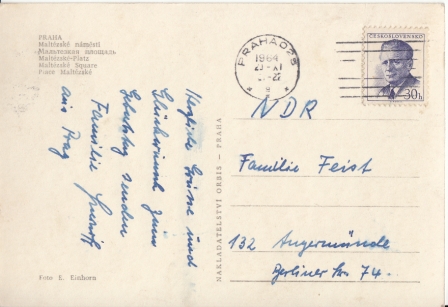 PRAHA
Maltézské náměstí
Мальтезская площадь
Malteser-Platz
Maltézské Square
Place Maltézské
Herzliche Grüsse und
Glückwünsche zum
Geburtstag senden
Familie
aus Prag
Foto E. Einhorn
NAKLADATELSTVÍ ORBIS - PRAHA
PRAHA 025
1964
ČESKOSLOVENSKO
30h
NDR
Familie Feist
132 Angermünde
Berliner Str. 74.